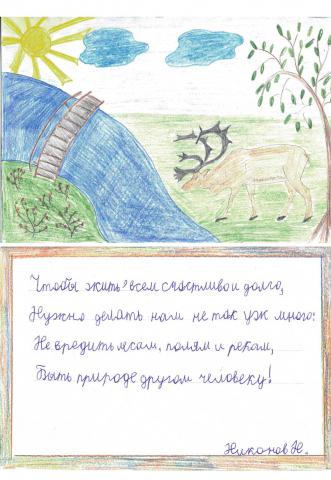 Чтобы жить всем счастливо и долго,
Нужно делать нам не так уж много:
Не вредить лесам, полям и рекам,
Быть природе другом человеку!
Никонов Н.